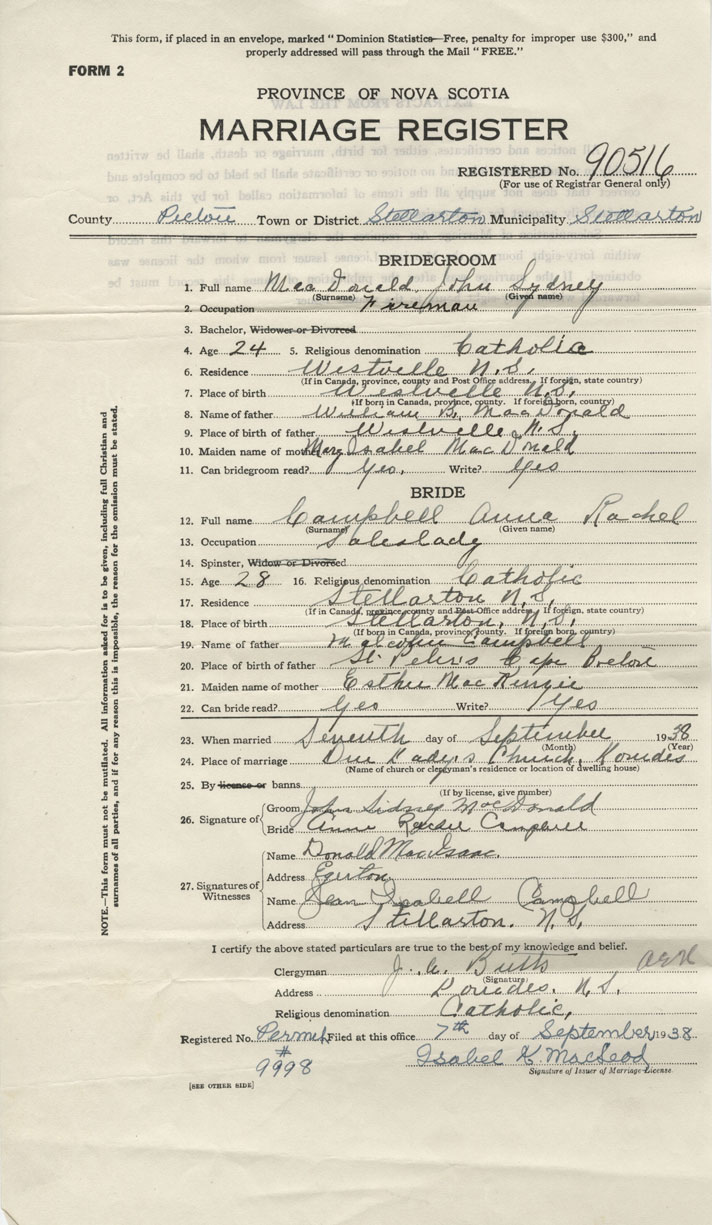 This form, if placed in an envelope, marked “ Dominion Statistics—Free, penalty for improper use $300,” and
properly addressed will pass through the Mail “FREE.”
FORM 2
PROVINCE OF NOVA SCOTIA
MARRIAGE REGISTER
REGISTERED No. 90516
(For use of Registrar General only)
County Pictou Town or District Stellarton Municipality Stellarton
BRIDEGROOM
1. Full name MacDonald John Sydney
(Surname) (Given name)
2. Occupation Fireman
3. Bachelor, Widower or Divorced
4. Age 24 5. Religious denomination Catholic
6. Residence Westville N.S.
(If in Canada, province, county and Post Office address. If foreign, state country)
7. Place of birth Westville N.S.
(If born in Canada, province, county. If foreign born, country)
8. Name of father William B. MacDonald
9. Place of birth of father Westville N.S.
10. Maiden name of mother Mary Isabel MacDonald
11. Can bridegroom read? Yes, Write? Yes
BRIDE
12. Full name Campbell Anna Rachel
(Surname) (Given name)
13. Occupation Saleslady
14. Spinster, Widow or Divorced
15. Age 28 16. Religious denomination Catholic
17. Residence Stellarton N.S.
(If in Canada, province county and Post Office address. If foreign, state country)
18. Place of birth Stellarton, N.S.
(If born in Canada, province, county. If foreign born, country)
19. Name of father Malcolm Campbell
20. Place of birth of father St. Peter's Cape Breton
21. Maiden name of mother Esther MacKenzie
22. Can bride read? Yes Write? Yes
23. When married Seventh day of September 1938
(Month) (Year)
24. Place of marriage Our Lady's Church, Lourdes
(Name of church or clergyman's residence or location of dwelling house)
25. By license or banns
(If by license, give number)
26. Signature of
Groom John Sidney MacDonald
Bride Anna Campbell
27. Signatures of Witnesses
Name Donald MacIsaac.
Address Egerton
Name Jean Isabell Campbell
Address Stellarton. N.S.
I certify the above stated particulars are true to the best of my knowledge and belief.
Clergyman J. C. Butts
(Signature)
Address Lourdes. N.S.
Religious denomination Catholic,
Registered No. Permit # 9998 Filed at this office 7th day of September 1938
Isabel K. MacLeod
Signature of Issuer of Marriage License
[SEE OTHER SIDE]
NOTE.—This form must not be mutilated. All information asked for is to be given, including full Christian and
surnames of all parties, and if for any reason this is impossible, the reason for the omission must be stated.